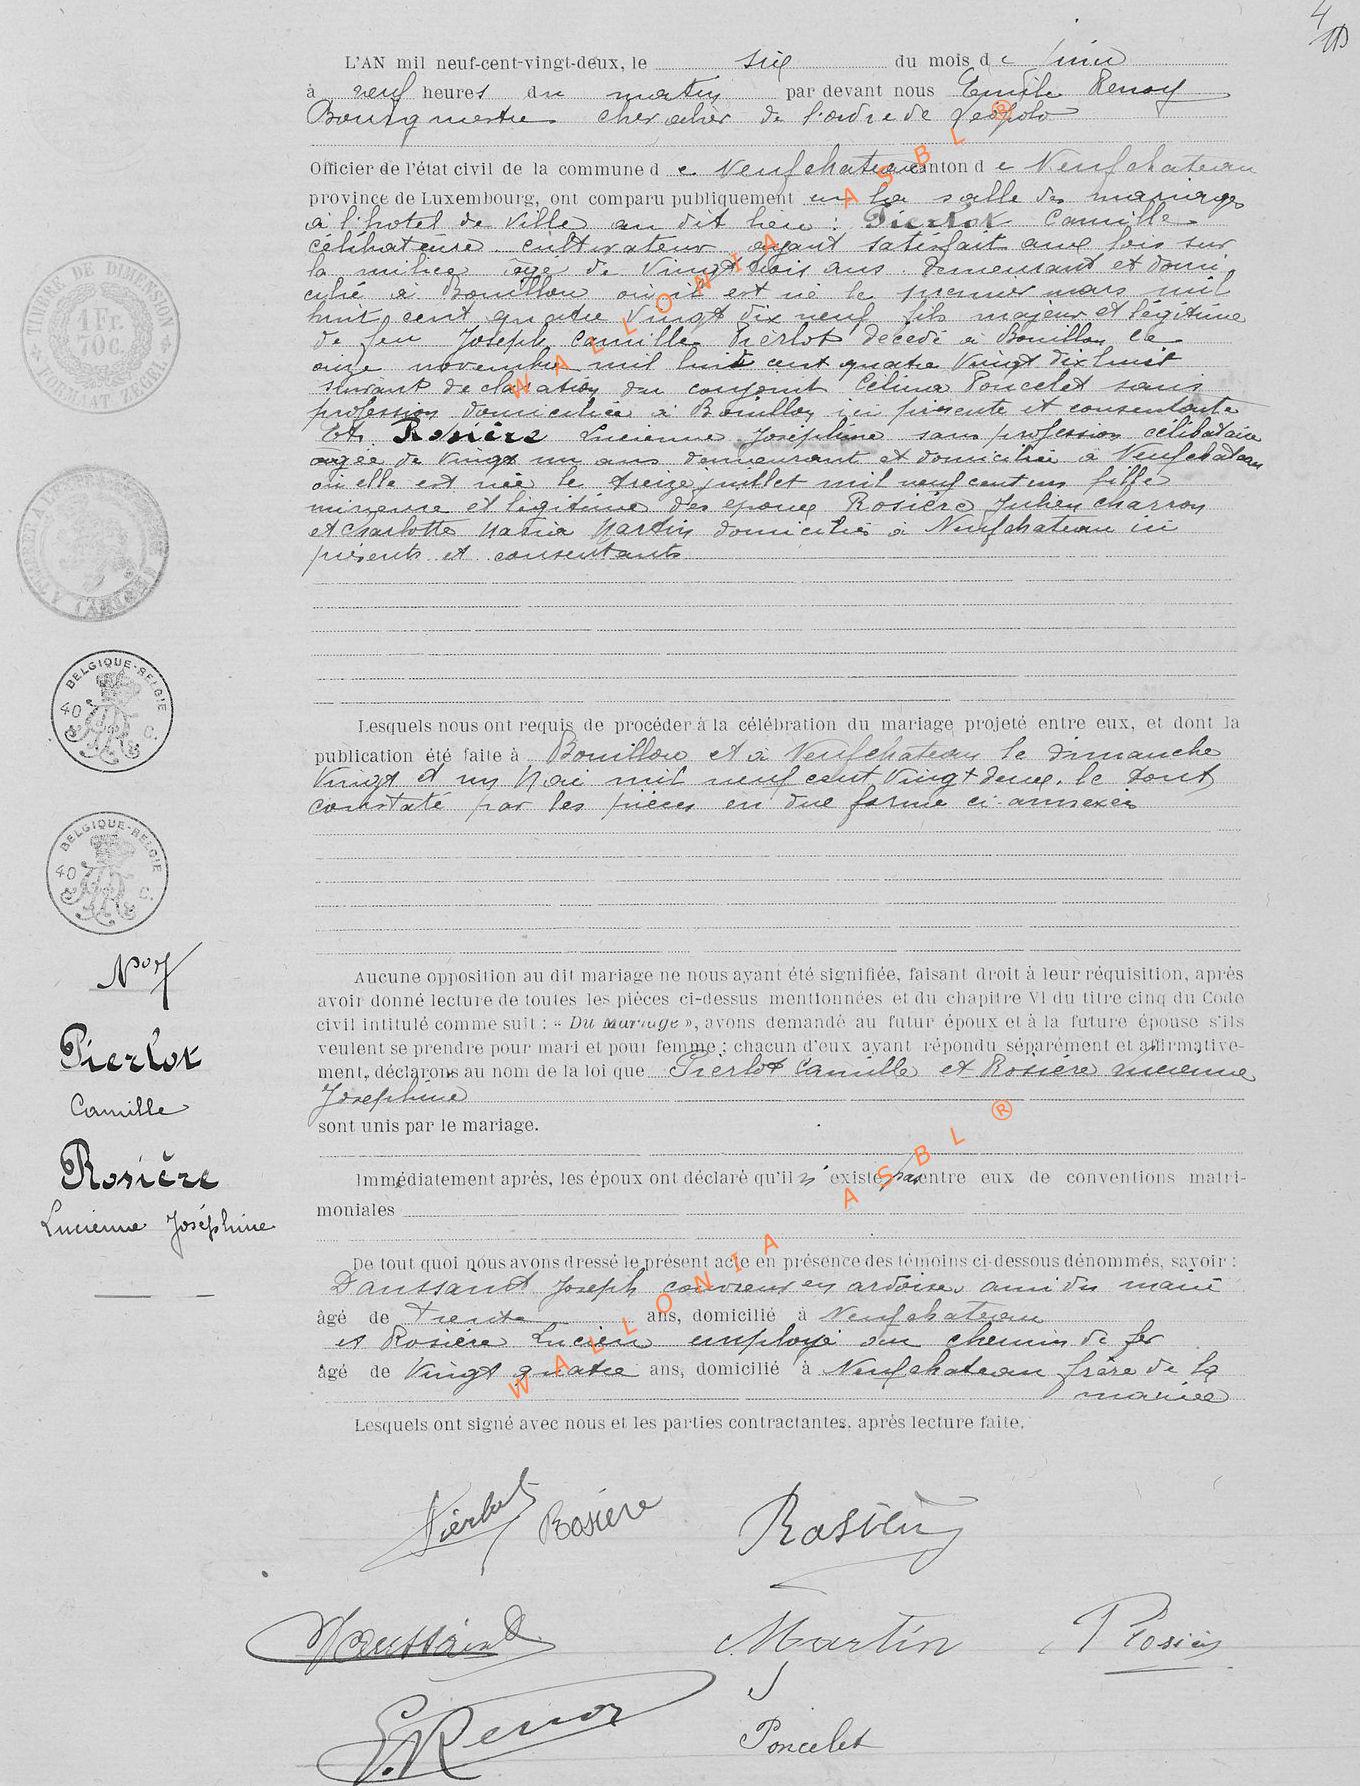 4
L'AN mil neuf-cent-vingt-deux, le six du mois de juin
à neuf heures du matin par devant nous Emile Renoy
Bourgmestre chevalier de l'ordre de Léopold
Officier de l'état civil de la commune de Neufchateau canton de Neufchateau
province de Luxembourg, ont comparu publiquement en la salle des mariages
à l'hotel de ville au dit lieu : Pierlot Camille
célibataire cultivateur ayant satisfait aux lois sur
la milice âgé de vingt trois ans demeurant et domi
cilié à Bouillon où il est né le premier mars mil
huit cent quatre vingt dix neuf fils majeur et légitime
de feu Joseph Camille Pierlot décédé à Bouillon le
onze novembre mil huit cent quatre vingt dix huit
suivant déclaration du conjoint Célina Poncelet sans
profession domiciliée à Bouillon ici présente et consentante
Et Rosière Lucienne Joséphine sans profession célibataire
agée de vingt un ans demeurant et domiciliée à Neufchateau
où elle est née le treize juillet mil neuf cent un fille
mineure et légitime des époux Rosière Julien charron
et Charlotte Maria Martin domiciliés à Neufchateau ici
présents et consentants
Lesquels nous ont requis de procéder à la célébration du mariage projeté entre eux, et dont la
publication été faite à Bouillon et à Neufchateau le dimanche
vingt et un Mai mil neuf cent vingt deux. le tout
constaté par les pièces en due forme ci-annexées
Aucune opposition au dit mariage ne nous ayant été signifiée, faisant droit à leur réquisition, après
avoir donné lecture de toutes les pièces ci-dessus mentionnées et du chapitre VI du titre cinq du Code
civil intitulé comme suit : « Du Mariage », avons demandé au futur époux et à la future épouse s'ils
veulent se prendre pour mari et pour femme ; chacun d'eux ayant répondu séparément et affirmative-
ment, déclarons au nom de la loi que Pierlot Camille et Rosière Lucienne
Joséphine
sont unis par le mariage.
Immédiatement après, les époux ont déclaré qu'il n'existe pas entre eux de conventions matri-
moniales
De tout quoi nous avons dressé le présent acte en présence des témoins ci-dessous dénommés, savoir :
Daussaint Joseph couvreur en ardoises ami du marié
âgé de trente ans, domicilié à Neufchateau
et Rosière Lucien employé au chemin de fer
âgé de vingt quatre ans, domicilié à Neufchateau frère de la
mariée
Lesquels ont signé avec nous et les parties contractantes, après lecture faite.
Pierlot Rosière Rosière
Daussaint Martin Rosière
E. Renoy
Poncelet
TIMBRE DE DIMENSION
1 Fr.
70 C.
FORMAAT ZEGEL
BELGIQUE-BELGIE
40 C.
BELGIQUE-BELGIE
40 C.
No 7
Pierlot
Camille
Rosière
Lucienne Joséphine
WALLONIA ASBL ®
WALLONIA ASBL ®